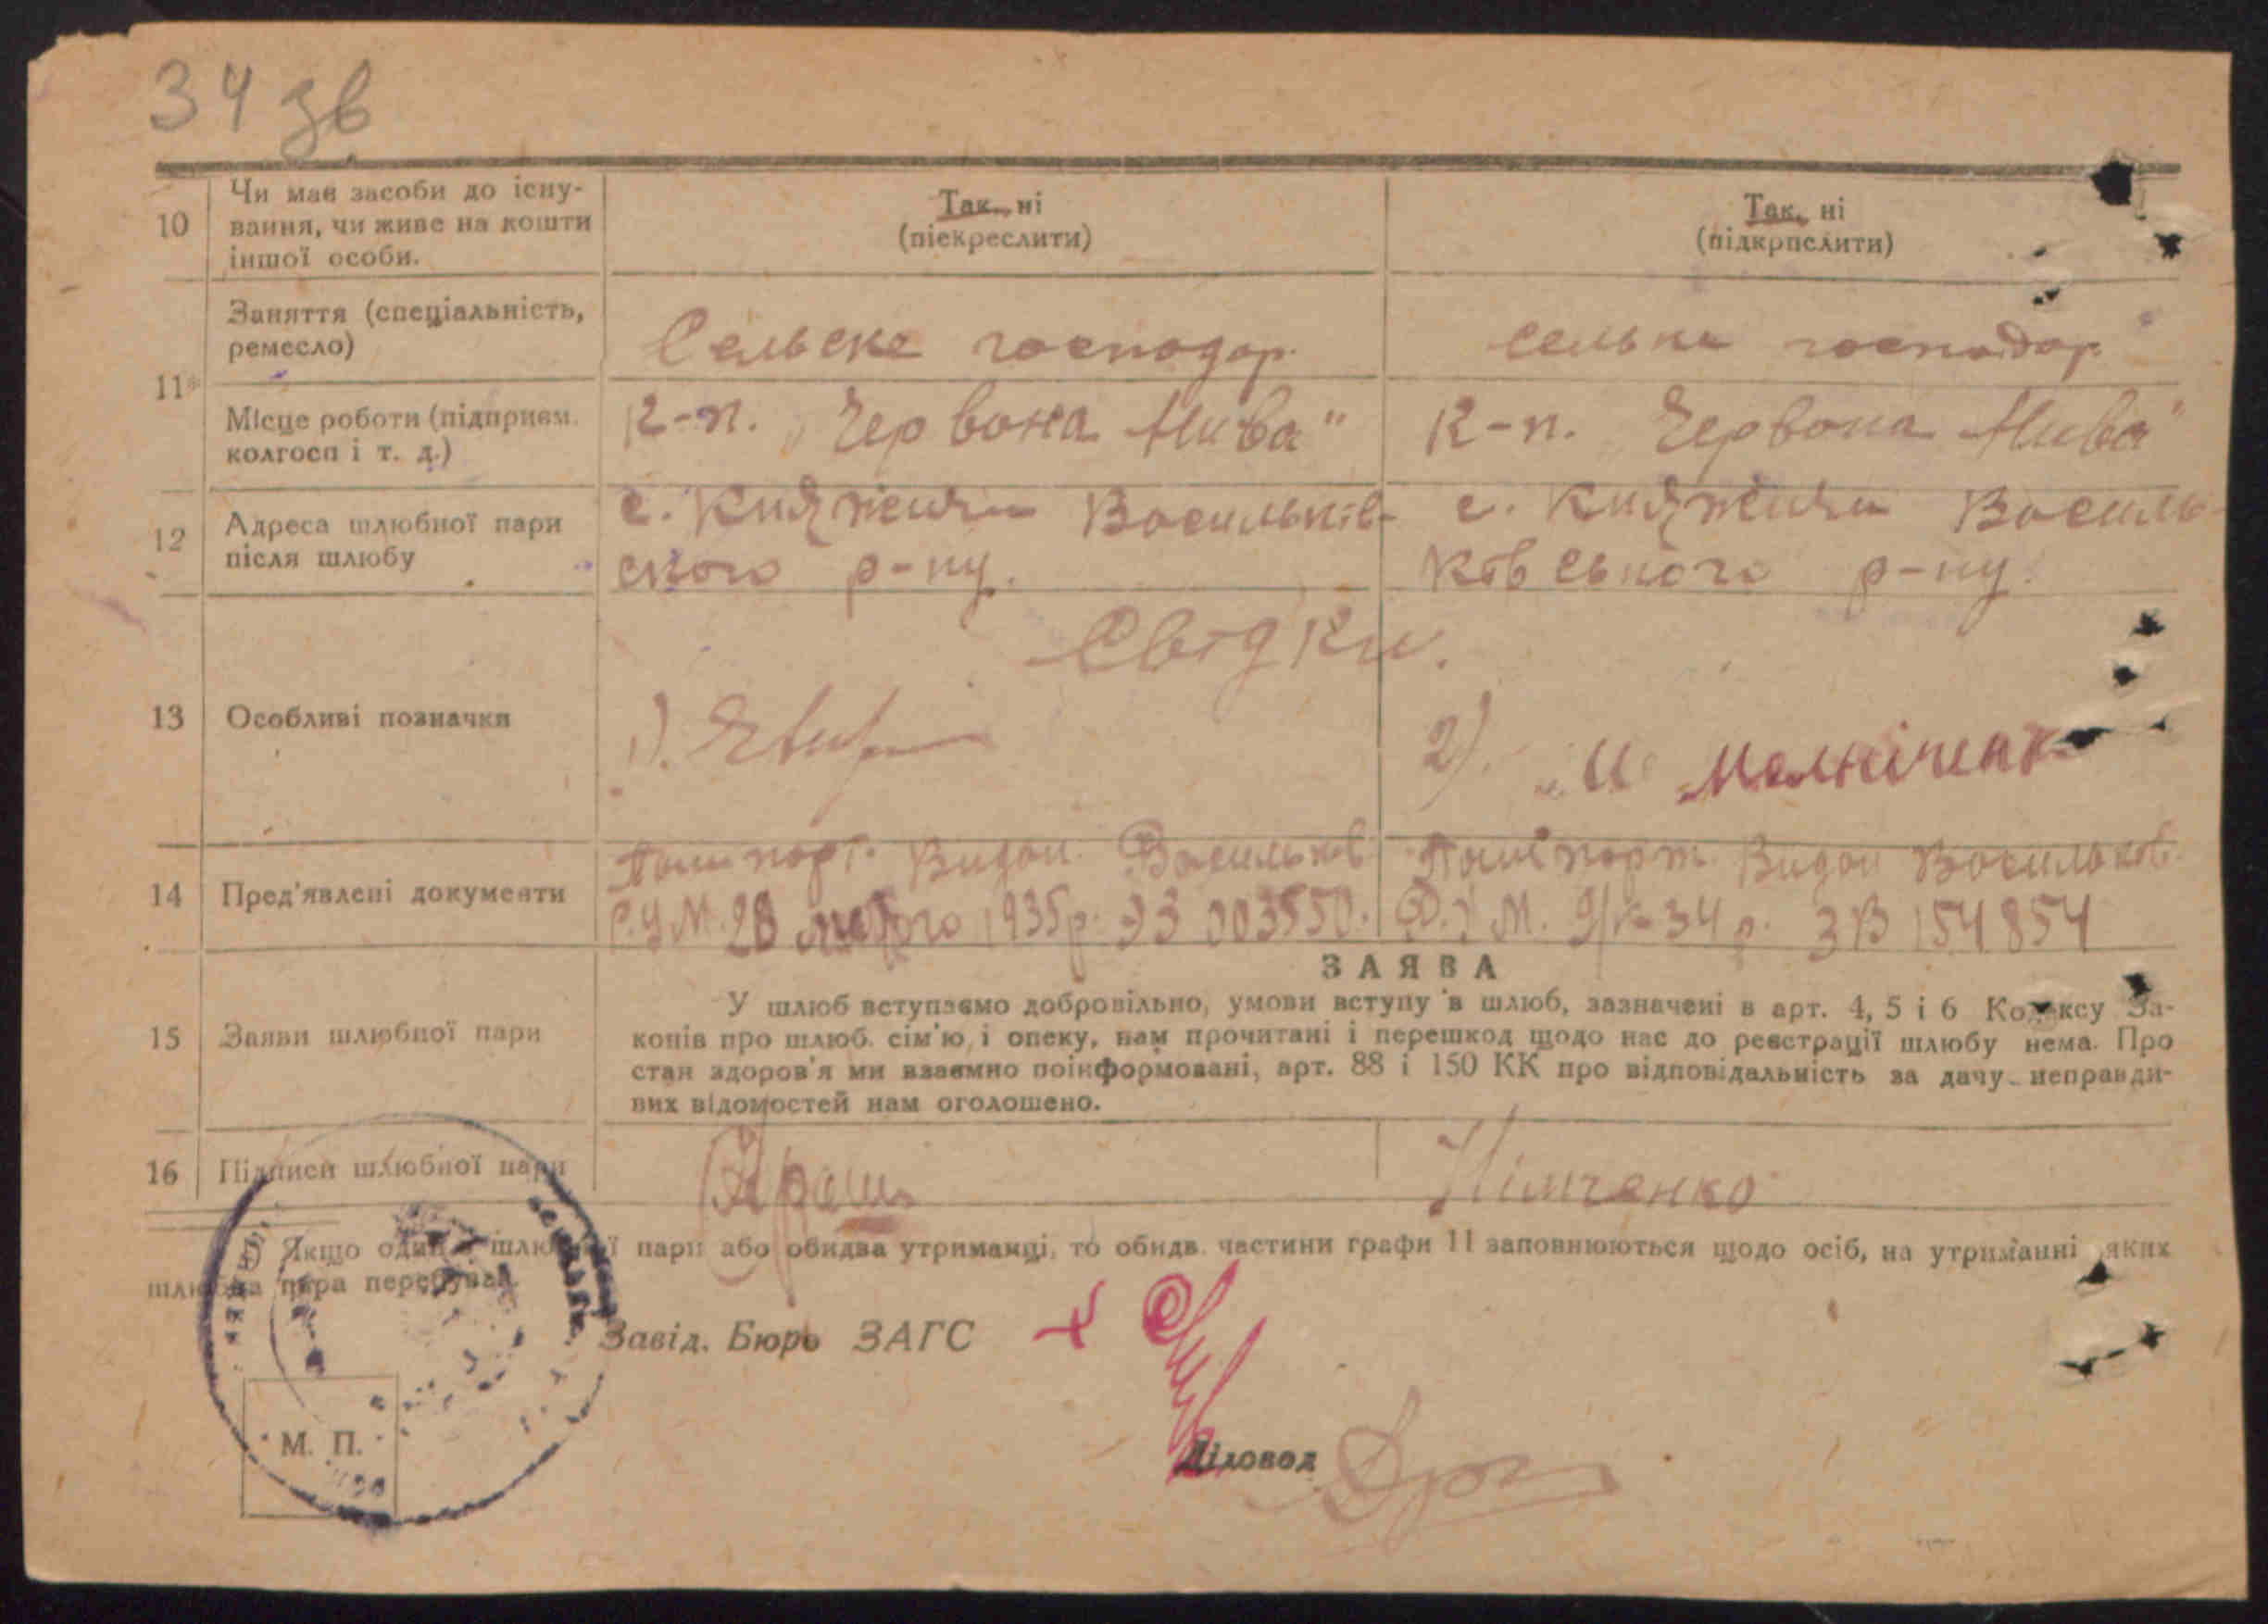 34 зв
10
Чи має засоби до існу-
вання, чи живе на кошти
іншої особи.
Так, ні
(піекреслити)
Так, ні
(підкрпслити)
11*
Заняття (спеціальність,
ремесло)
Сельске господар.
сельке господар.
Місце роботи (підприєм.
колгосп і т. д.)
к-п. „Червона Нива"
к-п. „Червона Нива"
12
Адреса шлюбної пари
після шлюбу
с. Княжичи Васильків-
ского р-ну.
с. Княжичи Василь-
ковського р-ну.
13
Особливі позначки
Свідки.
1).
2). Мельніченк
14
Пред'явлені документи
Пашпорт. Видан. Васильків.
Р.У.М. 28 лютого 1935 р. ЭЗ 003550.
Пашпорт. Видан Васильков.
Р.У.М. 9/к-34 р. ЗВ 154854
15
Заяви шлюбної пари
ЗАЯВА
У шлюб вступаємо добровільно, умови вступу в шлюб, зазначені в арт. 4, 5 і 6 Кодексу За-
конів про шлюб. сім'ю, і опеку, нам прочитані і перешкод щодо нас до реєстрації шлюбу нема. Про
стан здоров'я ми взаємно поінформовані, арт. 88 і 150 КК про відповідальність за дачу неправди-
вих відомостей нам оголошено.
16
Підписи шлюбної пари
Німченко
Якщо один з шлюбної пари або обидва утриманці, то обидв. частини графи 11 заповнюються щодо осіб, на утриманні яких
шлюбна пара перебуває.
Завід. Бюро ЗАГС
М. П.
Діловод